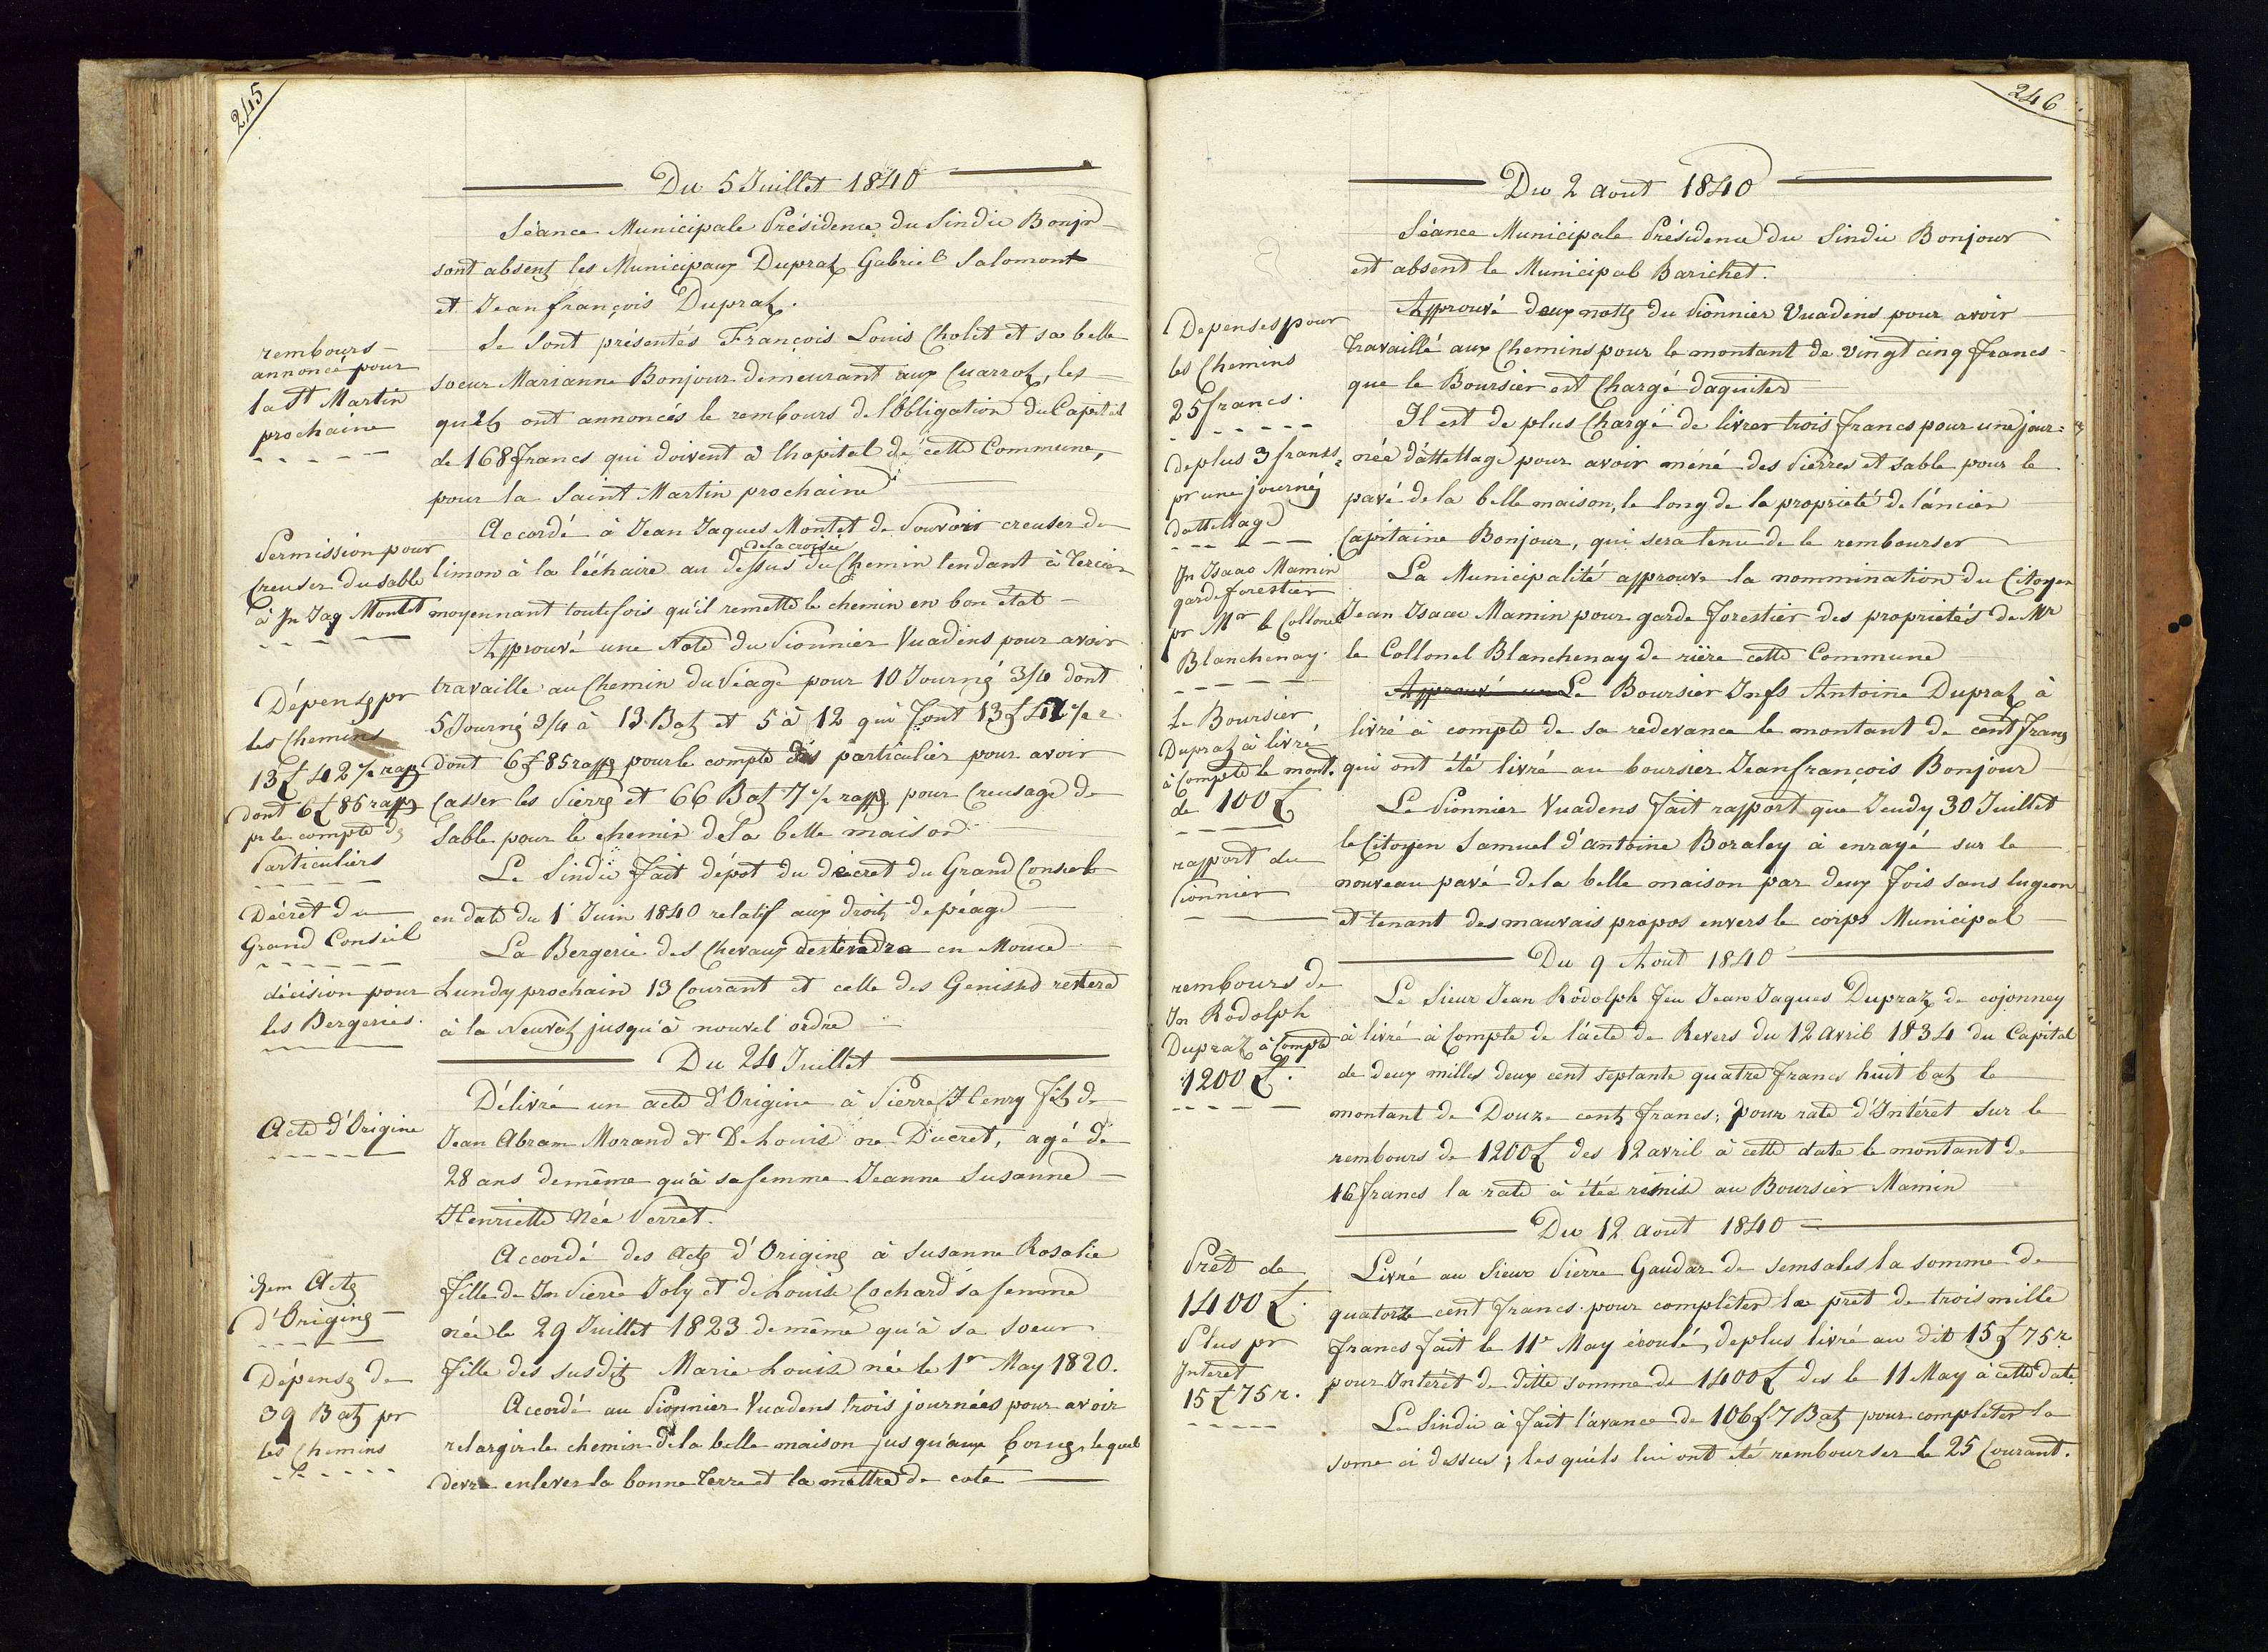 245
Du 5 Juillet 1840
Séance Municipale Présidence du Sindic Bonjr
sont absentz les Municipaux Dupraz Gabriel Salomont
et Jean françois Dupraz.
rembours
annoncé pour
la St Martin
prochaine
Se sont présentés François Louis Cholet et sa belle
soeur Marianne Bonjour demeurant aux Cuarroz, les
quels ont annoncés le rembours de l'Obligation du Capital
de 168 francs qui doivent à lhopital de cette Commune,
pour la Saint Martin prochaine
Permission pour
Creuser du sable
à Jn Jaq Montet
Accordé à Jean Jaques Montet de Pouvoir creuser de
de la croisée
limon à la léchaire au dessus du Chemin tendant à Tercier
moyennant toutefois qu'il remette le chemin en bon état
Dépensz pr
les Chemins
13 £ 42 ½ rapz
dont 6 £ 85 rappz
pr le compte dz
Particuliers
Approuvé une Note du Pionnier Vuadens pour avoir
travaille au Chemin du Péage pour 10 Journé 3/4 dont
5 Journé 3/4 à 13 Batz et 5 à 12 qui font 13 £ 42 ½ r
dont 6 £ 85 rappz pour le compte des particulier pour avoir
Casser les Pierrz et 66 Batz 7 ½ rappz pour Creusage de
sable pour le chemin de la belle maison
Décrèt du
Grand Conseil
Le Sindic fait dépot du décret du Grand Conseil
en date du 1r Juin 1840 relatif aux droitz de péage
décision pour
les Bergeries.
La Bergerie des Chevaux destendra en Mouce
Lundy prochain 13 Courant et celle des Genisses restera
à la Neuvaz jusqu'à nouvel ordre
Du 24 Juillet
Acte d'Origine
Délivré un acte d'Origine à Pierre Henry fils de
Jean Abram Morand et De Louise née Ducret, agé de
28 ans demême qu'à sa femme Jeanne Susanne
Henriette Née Perret.
Item Actz
d'Originz
Accordé des Actz d'Originz à Susanne Rosalie
fille de Jn Pierre Joly et de Louise Cochard sa femme
née le 29 Juillet 1823 demême qu'à sa soeur
fille des susditz Marie Louise née le 1er May 1820.
Dépensz de
39 Batz pr
les Chemins
Accordé au Pionnier Vuadens trois journées pour avoir
relargir le chemin de la belle maison jusqu'aux lequel
devra enlever la bonne Terre et la mettre de coté
246
Du 2 aout 1840
Séance Municipale Présidence du Sindic Bonjour
est absent le Municipal Barichet.
Depenses pour
les Chemins
25 francs.
Approuvé deux nottz du Pionnier Vuadens pour avoir
travaillé aux Chemins pour le montant de vingt cinq francs
que le Boursier est Chargé daquiter
deplus 3 francs
pr une journé
dattellage
Il est de plus Chargé de livrer trois francs pour une jour=
née d'attellage pour avoir méné des Pierres et sable, pour le
pavé de la belle maison, le long de la proprieté de l'ancien
Capitaine Bonjour, qui sera tenu de le rembourser
Jn Isaac Mamin
garde forestier
pr Mr le Collonel
Blanchenay.
La Municipalité approuve la nommination du Citoyen
Jean Isaac Mamin pour garde forestier des proprietés de Mr
le Collonel Blanchenay de rière cette Commune
Le Boursier
Dupraz à livré
à Compte le mont.
de 100 £
Approuvé un Le Boursier Jnfs Antoine Dupraz à
livré à compte de sa redevance le montant de cent franz
qui ont été livré au boursier Jean françois Bonjour
rapport du
Pionnier
Le Pionnier Vuadens fait rapport que Jeudy 30 Juillet
le Citoyen Samuel d'antoine Boraley à enrayé sur le
nouveau pavé de la belle maison par deux fois sans lugeon
et tenant des mauvais propos envers le corps Municipal
Du 9 Aout 1840
rembours de
Jn Rodolph
Dupraz à Compte
1200 £.
Le Sieur Jean Rodolph feu Jean Jaques Dupraz de cojonney
à livré à Compte de l'acte de Revers du 12 Avril 1834 du Capital
de deux milles deux cent septante quatre francs huit batz le
montant de Douze centz francs; pour rate d'Intéret sur le
rembours de 1200 £ des 12 avril à cette date le montant de
16 francs la rate à étée remise au Boursier Mamin
Du 12 aout 1840
Prêt de
1400 £.
Plus pr
Interet
15 £ 75 r.
Livré au Sieur Pierre Gaudar de semsales la somme de
quatorze cent francs pour compléter la prêt de trois mille
francs fait le 11e May écoulé, deplus livré au dit 15 £ 75 r
pour Intérêt de ditte somme de 1400 £ des le 11 May à cette date
Le Sindic à fait l'avance de 106 £ 7 Batz pour completer la
some ci dessus; les quels lui ont été rembourser le 25 Courant.